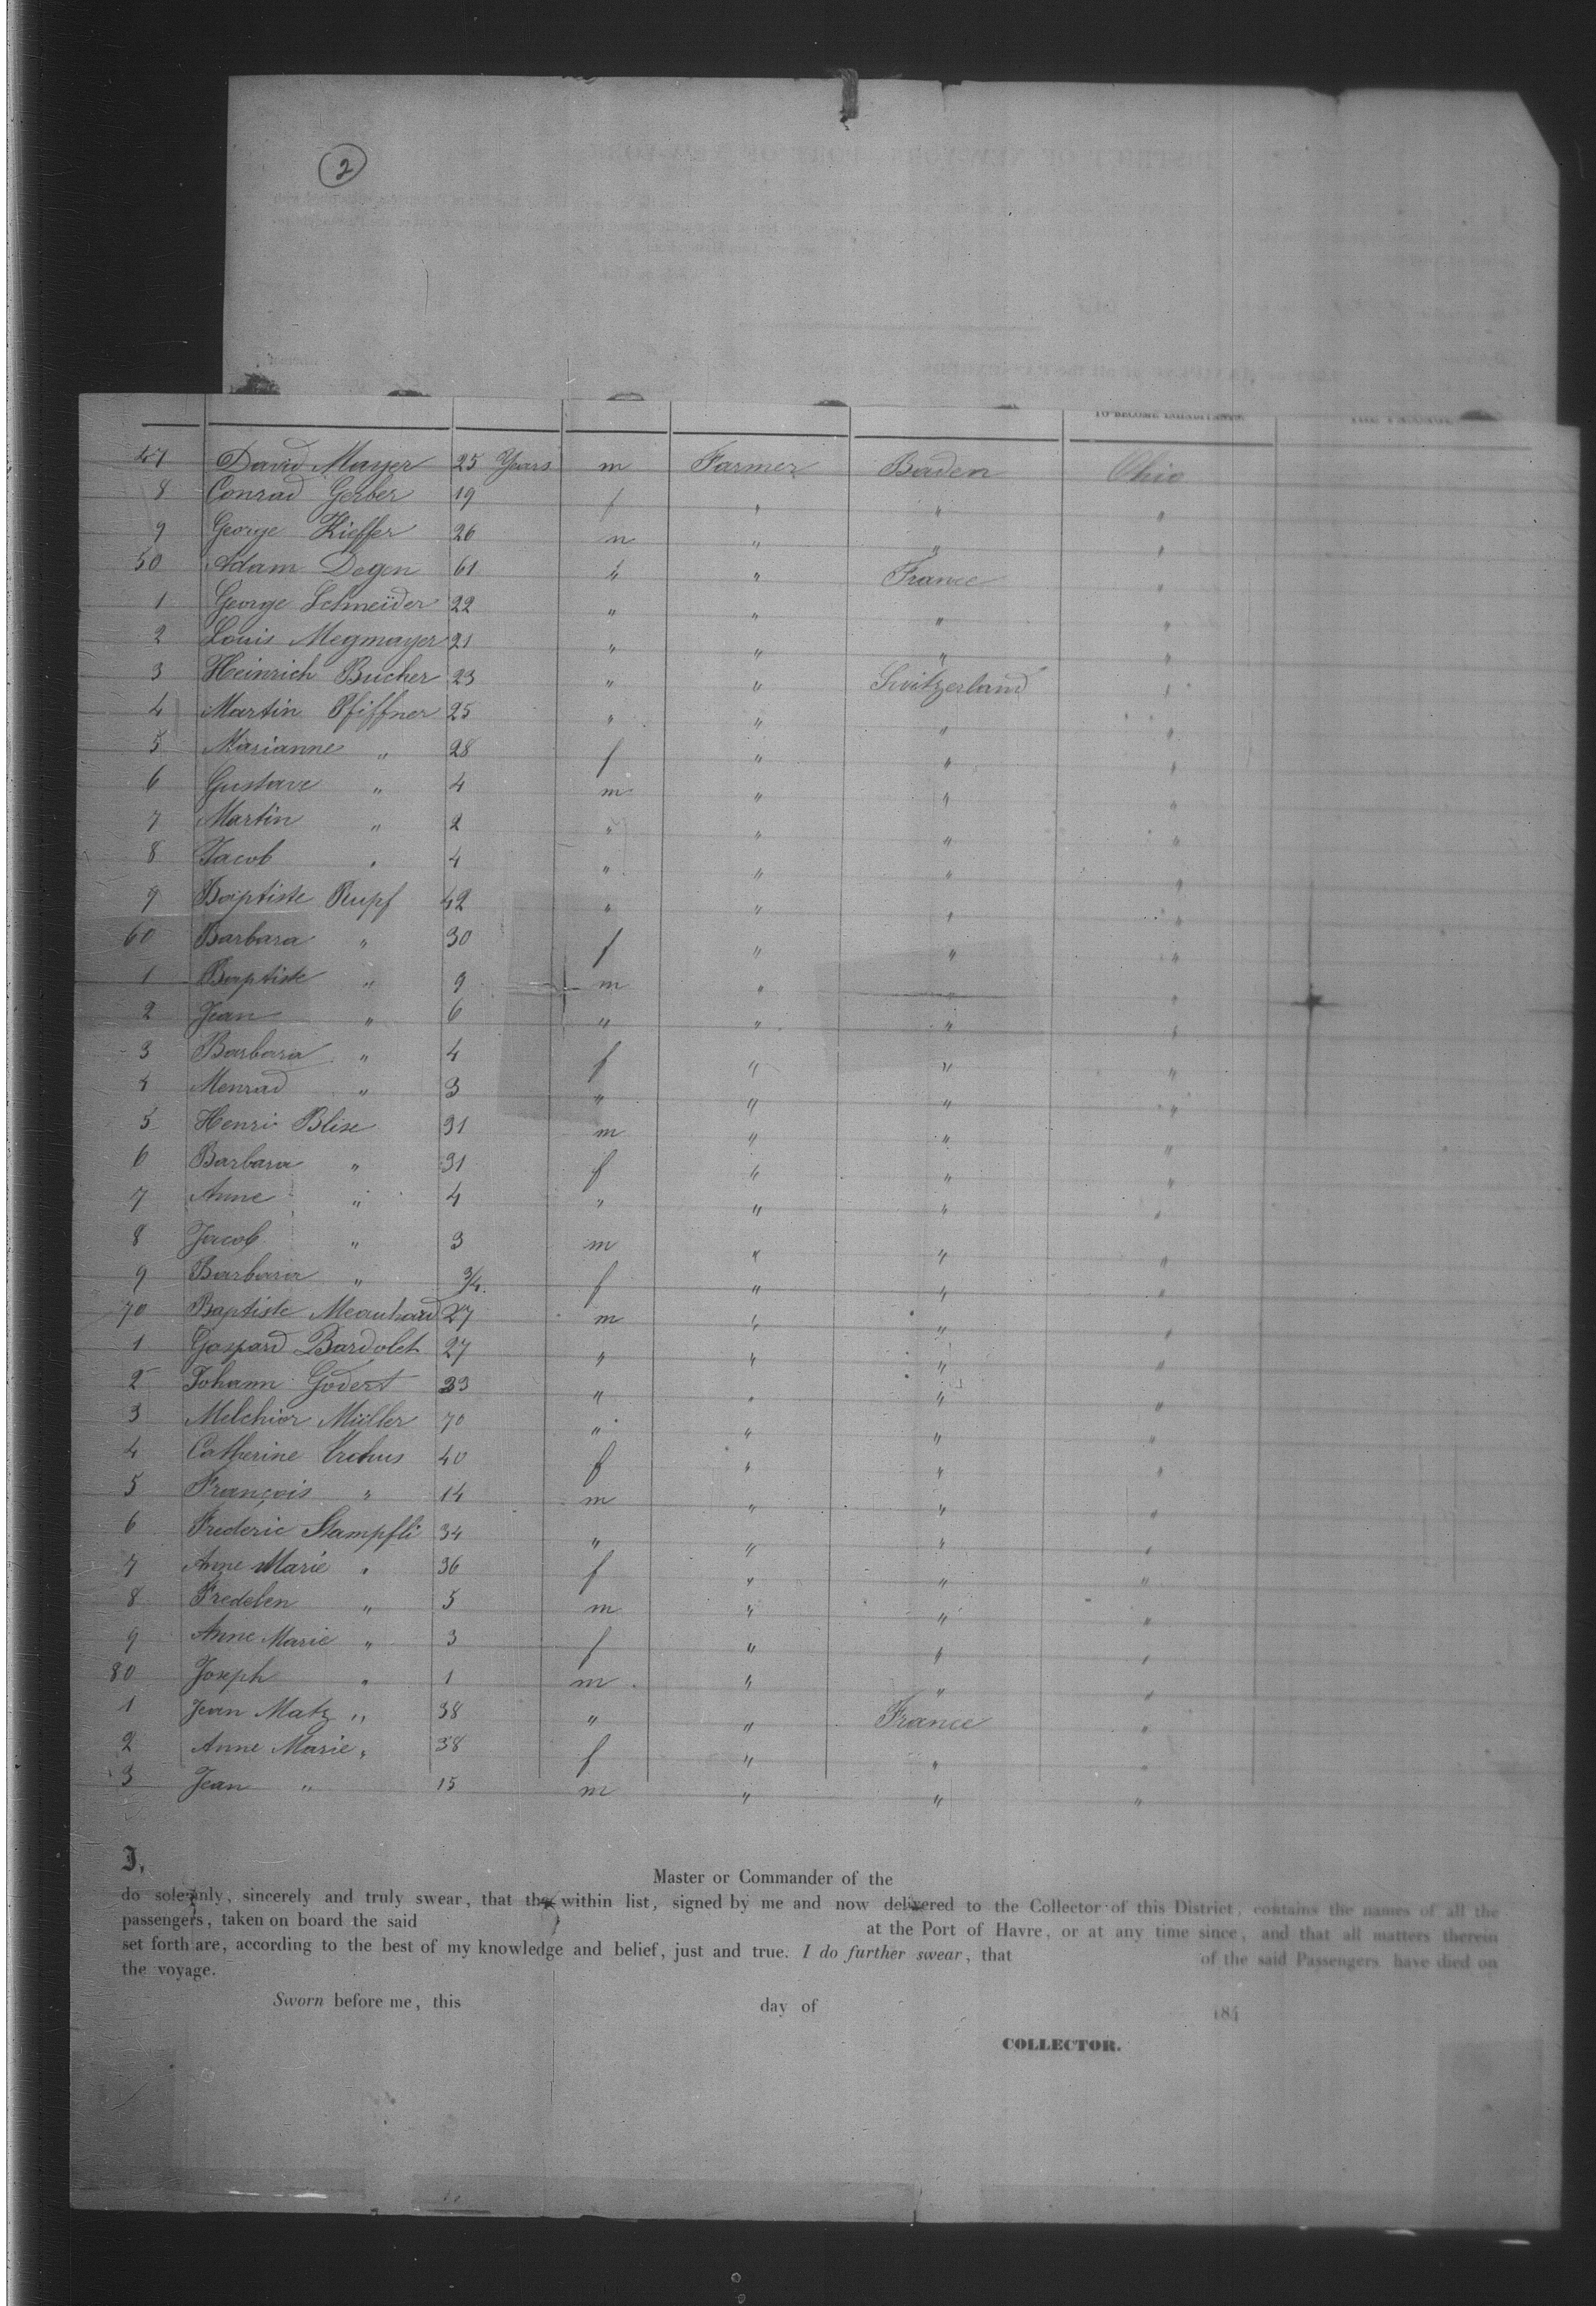 2
TO BECOME INHABITANTS.
47 David Mayer 25 Years m Farmer Baden Ohio
8 Conrad Gerber 19 f " " "
9 George Kieffer 26 m " " "
50 Adam Degen 61 " " France "
1 George Schmeider 22 " " " "
2 Louis Megmayer 21 " " " "
3 Heinrich Bucher 23 " " Switzerland "
4 Martin Pfiffner 25 " " " "
5 Marianne " 28 f " " "
6 Gustave " 4 m " " "
7 Martin " 2 " " " "
8 Jacob " 4 " " " "
9 Baptiste Rupf 42 " " " "
60 Barbara " 30 f " " "
1 Baptiste " 9 m " " "
2 Jean " 6 " " " "
3 Barbara " 4 f " " "
4 Menrad " 3 " " " "
5 Henri Blise 31 m " " "
6 Barbara " 31 f " " "
7 Anne " 4 " " " "
8 Jacob " 3 m " " "
9 Barbara " 3/4 f " " "
70 Baptiste 27 m " " "
1 Gaspard Bardolet 27 " " " "
2 Johann Godert 33 " " " "
3 Melchior Müller 70 " " " "
4 Catherine 40 f " " "
5 François " 14 m " " "
6 Frederic Stampfli 34 " " " "
7 Anne Marie " 36 f " " "
8 Fredelen " 5 m " " "
9 Anne Marie " 3 f " " "
80 Joseph " 1 m " " "
1 Jean Matz " 38 " " France "
2 Anne Marie " 38 f " " "
3 Jean " 15 m " " "
I, Master or Commander of the
do solemnly, sincerely and truly swear, that the within list, signed by me and now delivered to the Collector of this District, contains the names of all the
passengers, taken on board the said at the Port of Havre, or at any time since, and that all matters therein
set forth are, according to the best of my knowledge and belief, just and true. I do further swear, that of the said Passengers have died on
the voyage.
Sworn before me, this day of 184
COLLECTOR.